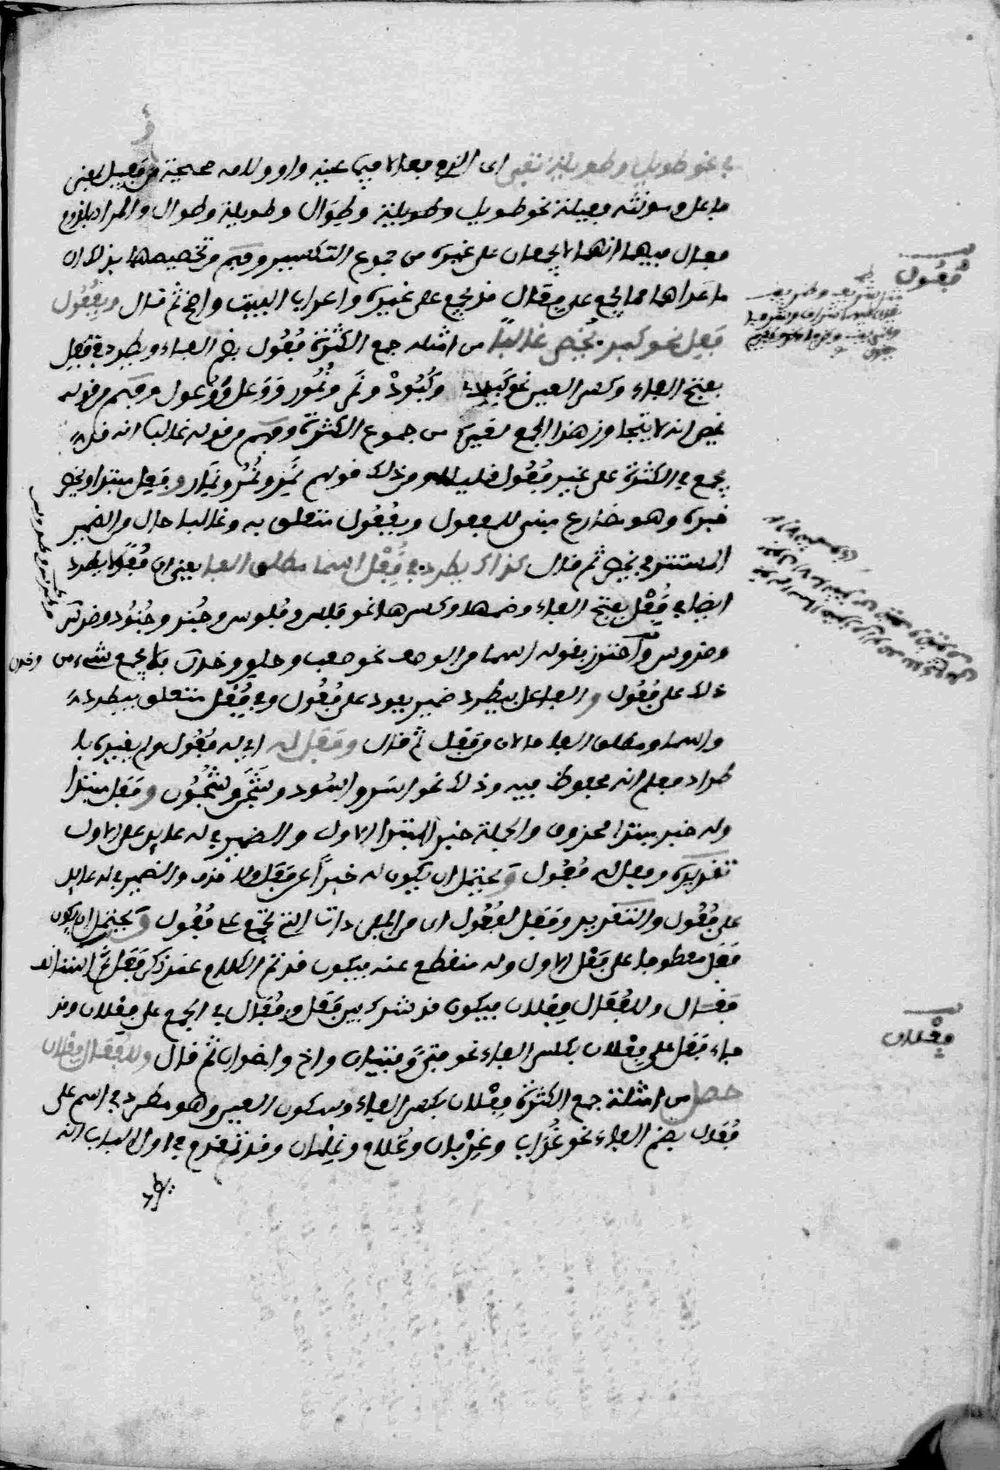 في نحو طويل وطويلة تفي اى الزم فعالا فيما عينه واو ولامه صحيحة من فعيل بمعنى
فاعل ومونثه فعيلة نحو طويل وطوال وطويلة وطوال والمراد بلزوم
فعال فيهما انهما لا يجمعان على غيره من جموع التكسير وفهم من تخصيصهما بذلك ان
ما عداهما مما يجمع على فعال قد يجمع على غيره واعراب البيت واضح ثم قال وبفعول
فعل نحو كبد يخص غالبا من امثلة جمع الكثرة فعول بضم الفاء ويطرد في فعل
بفتح الفاء وكسر العين نحو كبد وكبود ونمر ونمور ووعل ووعول وفهم من قوله
يخص انه لا يتجاوز هذا الجمع لغيره من جموع الكثرة وفهم من قوله غالبا انه قد
يجمع في الكثرة على غير فعول قليلا ومن ذلك قولهم نمر ونمر ونمار وفعل مبتدا ويخص
خبره وهو مضارع مبنى للمفعول وبفعول متعلق به وغالبا حال من الضمير
المستتر في يخص ثم قال كذاك يطرد في فعل اسما مطلق الفا يعنى ان فعولا يطرد
ايضا في فعل بفتح الفاء وضمها وكسرها نحو فلس وفلوس وجند وجنود وضرس
وضروس واحترز بقوله اسما من الوصف نحو صعب وحلو وخدن فلا يجمع شىء من
ذلك على فعول والفاعل بيطرد ضمير يعود على فعول وفي فعل متعلق بيطرد
واسما ومطلق الفا حالان من فعل ثم قال وفعل له اى له فعول ولم يقيده با
طراد فعلم انه محفوظ فيه وذلك نحو اسد واسود وشجن وشجون وفعل مبتدا
وله خبر مبتدا محذوف والجملة خبر المبتدا الاول والضمير في له عايد على الاول
تقديره وفعل له فعول ويحتمل ان يكون له خبرا عن فعل ولا حذف والضمير في له عايد
على فعول والتقدير وفعل لفعول اى من المفردات التي تجمع على فعول ويحتمل ان يكون
فعل معطوفا على فعل الاول وله منقطع عنه فيكون قد تم الكلام عند ذكر فعل ثم استانف
فقال وللفعال فعلان فيكون قد شرك بين فعل وفعال في الجمع على فعلان وقد
جاء فعل على فعلان بكسر الفاء نحو فتى وفتيان واخ واخوان ثم قال وللفعال فعلان
حصل من امثلة جمع الكثرة فعلان بكسر الفاء وسكون العين وهو مطرد في اسم على
فعال بضم الفاء نحو غراب وغربان وغلام وغلمان وقد تقدم في اول الباب انه
فعول
فعلان